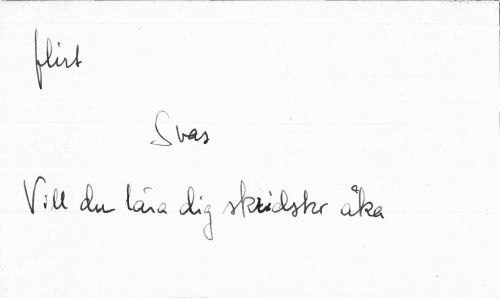 flirt
Svar
Vill du lära dig skridskr åka